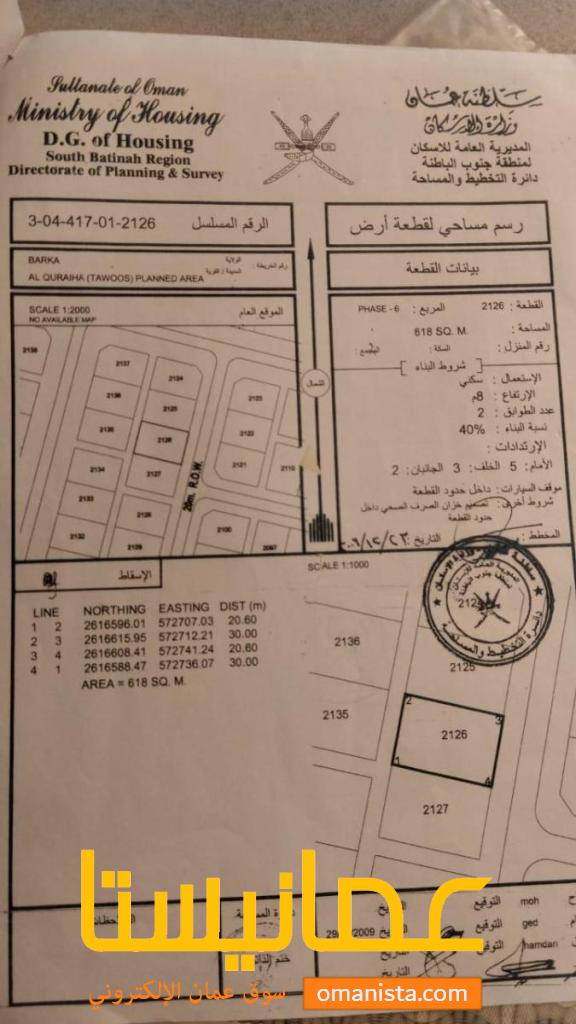 Sultanate of Oman
Ministry of Housing
D.G. of Housing
South Batinah Region
Directorate of Planning & Survey
سلطنة عمان
وزارة الإسكان
المديرية العامة للاسكان
لمنطقة جنوب الباطنة
دائرة التخطيط والمساحة
3-04-417-01-2126 الرقم المسلسل
رسم مساحي لقطعة أرض
BARKA الولاية
المدينة / القرية رقم الخريطة :
AL QURAIHA (TAWOOS) PLANNED AREA
بيانات القطعة
SCALE 1:2000 الموقع العام
NO AVAILABLE MAP
القطعة : 2126 المربع : PHASE - 6
المساحة : 618 SQ. M.
رقم المنزل : السكة :
شروط البناء
الإستعمال : سكني
الإرتفاع : 8م
عدد الطوابق : 2
نسبة البناء : 40%
الإرتدادات :
الأمام: 5 الخلف: 3 الجانبان: 2
موقف السيارات: داخل حدود القطعة
شروط أخرى: تصميم خزان الصرف الصحي داخل
حدود القطعة
المخطط :
التاريخ:
الشمال
2137
2134
2136
2125
2123
2135
2126
2122
2134
2127
2121
2110
2133
2128
2132
2129
2100
2097
28m. R.O.W.
SCALE 1:1000
الإسقاط
LINE NORTHING EASTING DIST (m)
1 2 2616596.01 572707.03 20.60
2 3 2616615.95 572712.21 30.00
3 4 2616608.41 572741.24 20.60
4 1 2616588.47 572736.07 30.00
AREA = 618 SQ. M.
دائرة التخطيط والمساحة
2136
2125
2135
2
3
2126
1
4
2127
moh التوقيع التاريخ
ged التوقيع التاريخ 2009
hamdan التوقيع التاريخ
التاريخ
عمانيستا
سوق عمان الإلكتروني
omanista.com